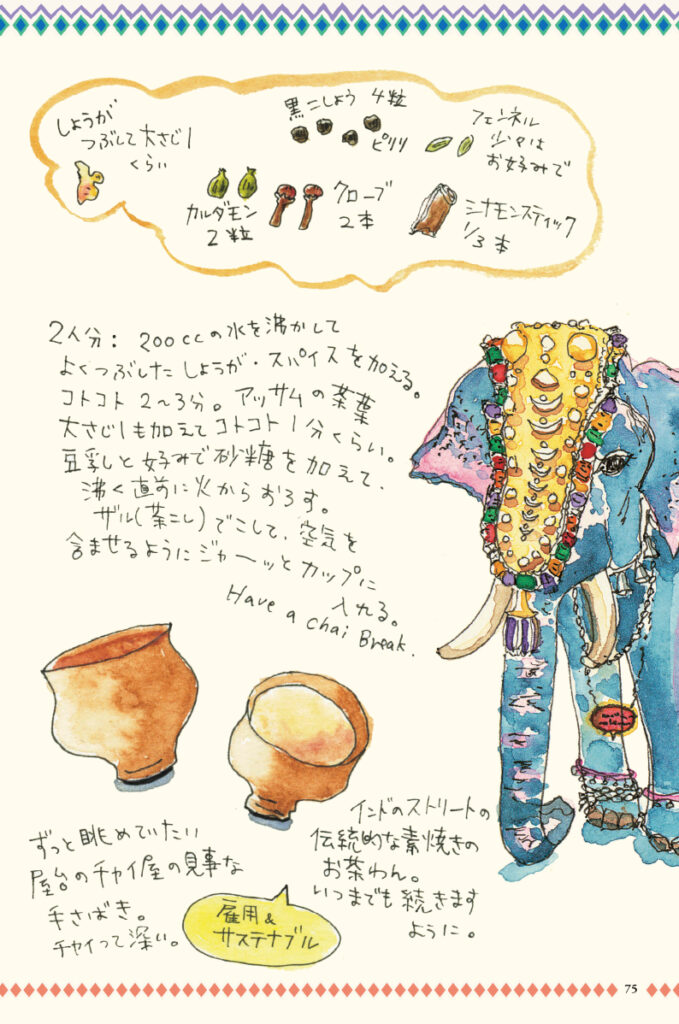 しょうが
つぶして大さじ1
くらい
黒こしょう 4粒
ピリリ
フェンネル
少々は
お好みで
カルダモン
2粒
クローブ
2本
シナモンスティック
1/3本
2人分： 200ccの水を沸かして
よくつぶしたしょうが・スパイスを加える。
コトコト2〜3分。アッサムの茶葉
大さじ1も加えてコトコト1分くらい。
豆乳しと好みで砂糖を加えて、
沸く直前に火からおろす。
ザル(茶こし)でこして、空気を
含ませるようにジャーッとカップに
入れる。
Have a chai Break.
ずっと眺めていたい
屋台のチャイ屋の見事な
手さばき。
チャイって深い。
雇用&
サステナブル
インドのストリートの
伝統的な素焼きの
お茶わん。
いつまでも続きます
ように。
75